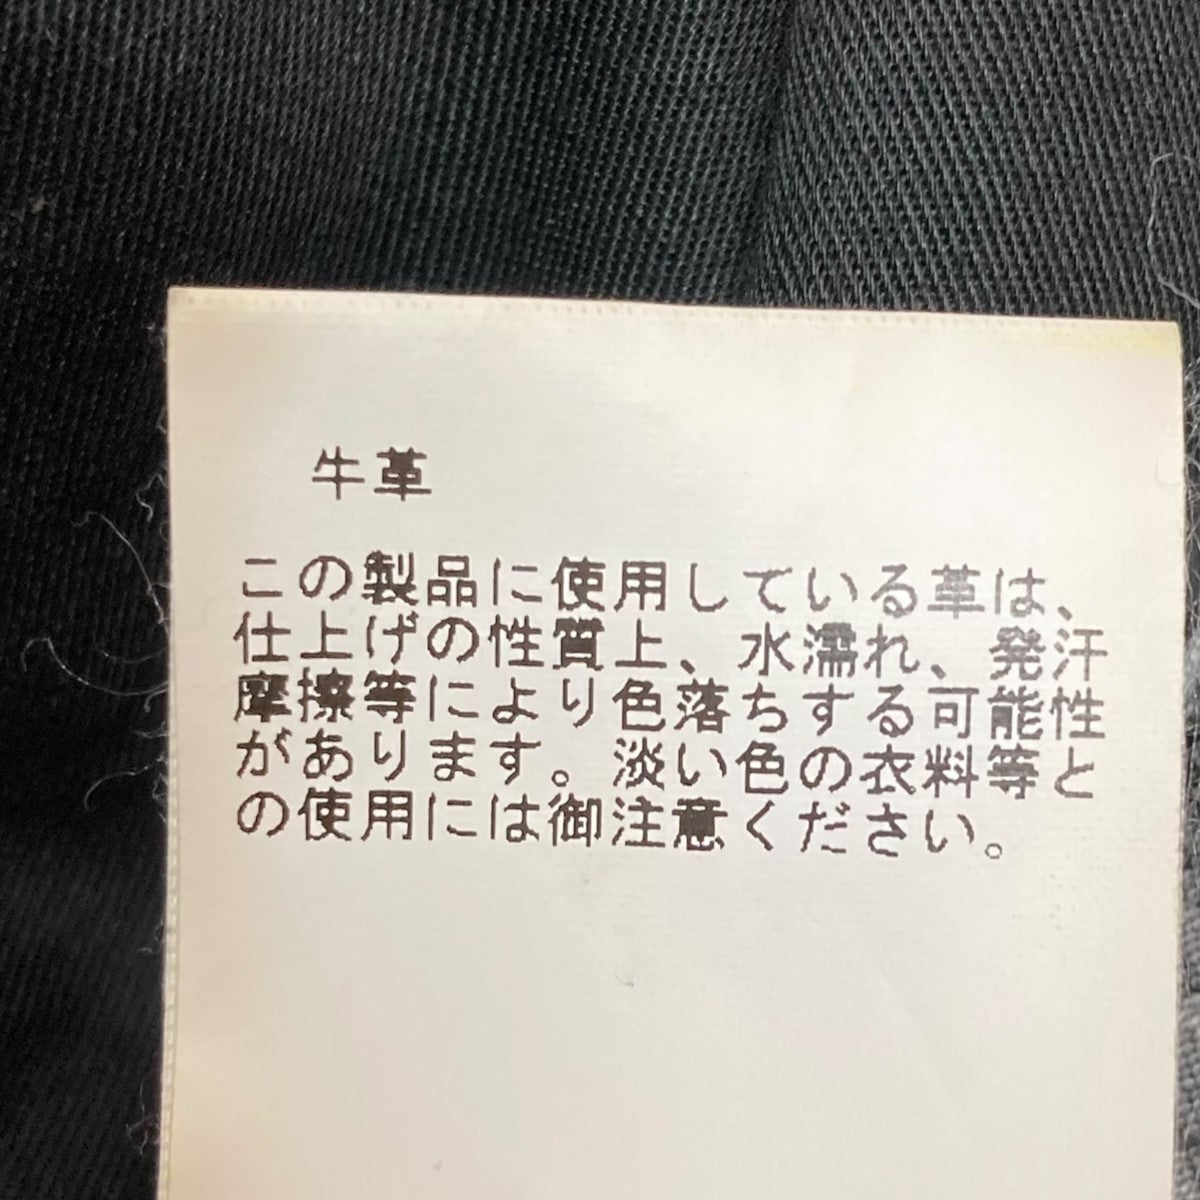 牛革
この製品に使用している革は、
仕上げの性質上、水濡れ、発汗
摩擦等により色落ちする可能性
があります。淡い色の衣料等と
の使用には御注意ください。